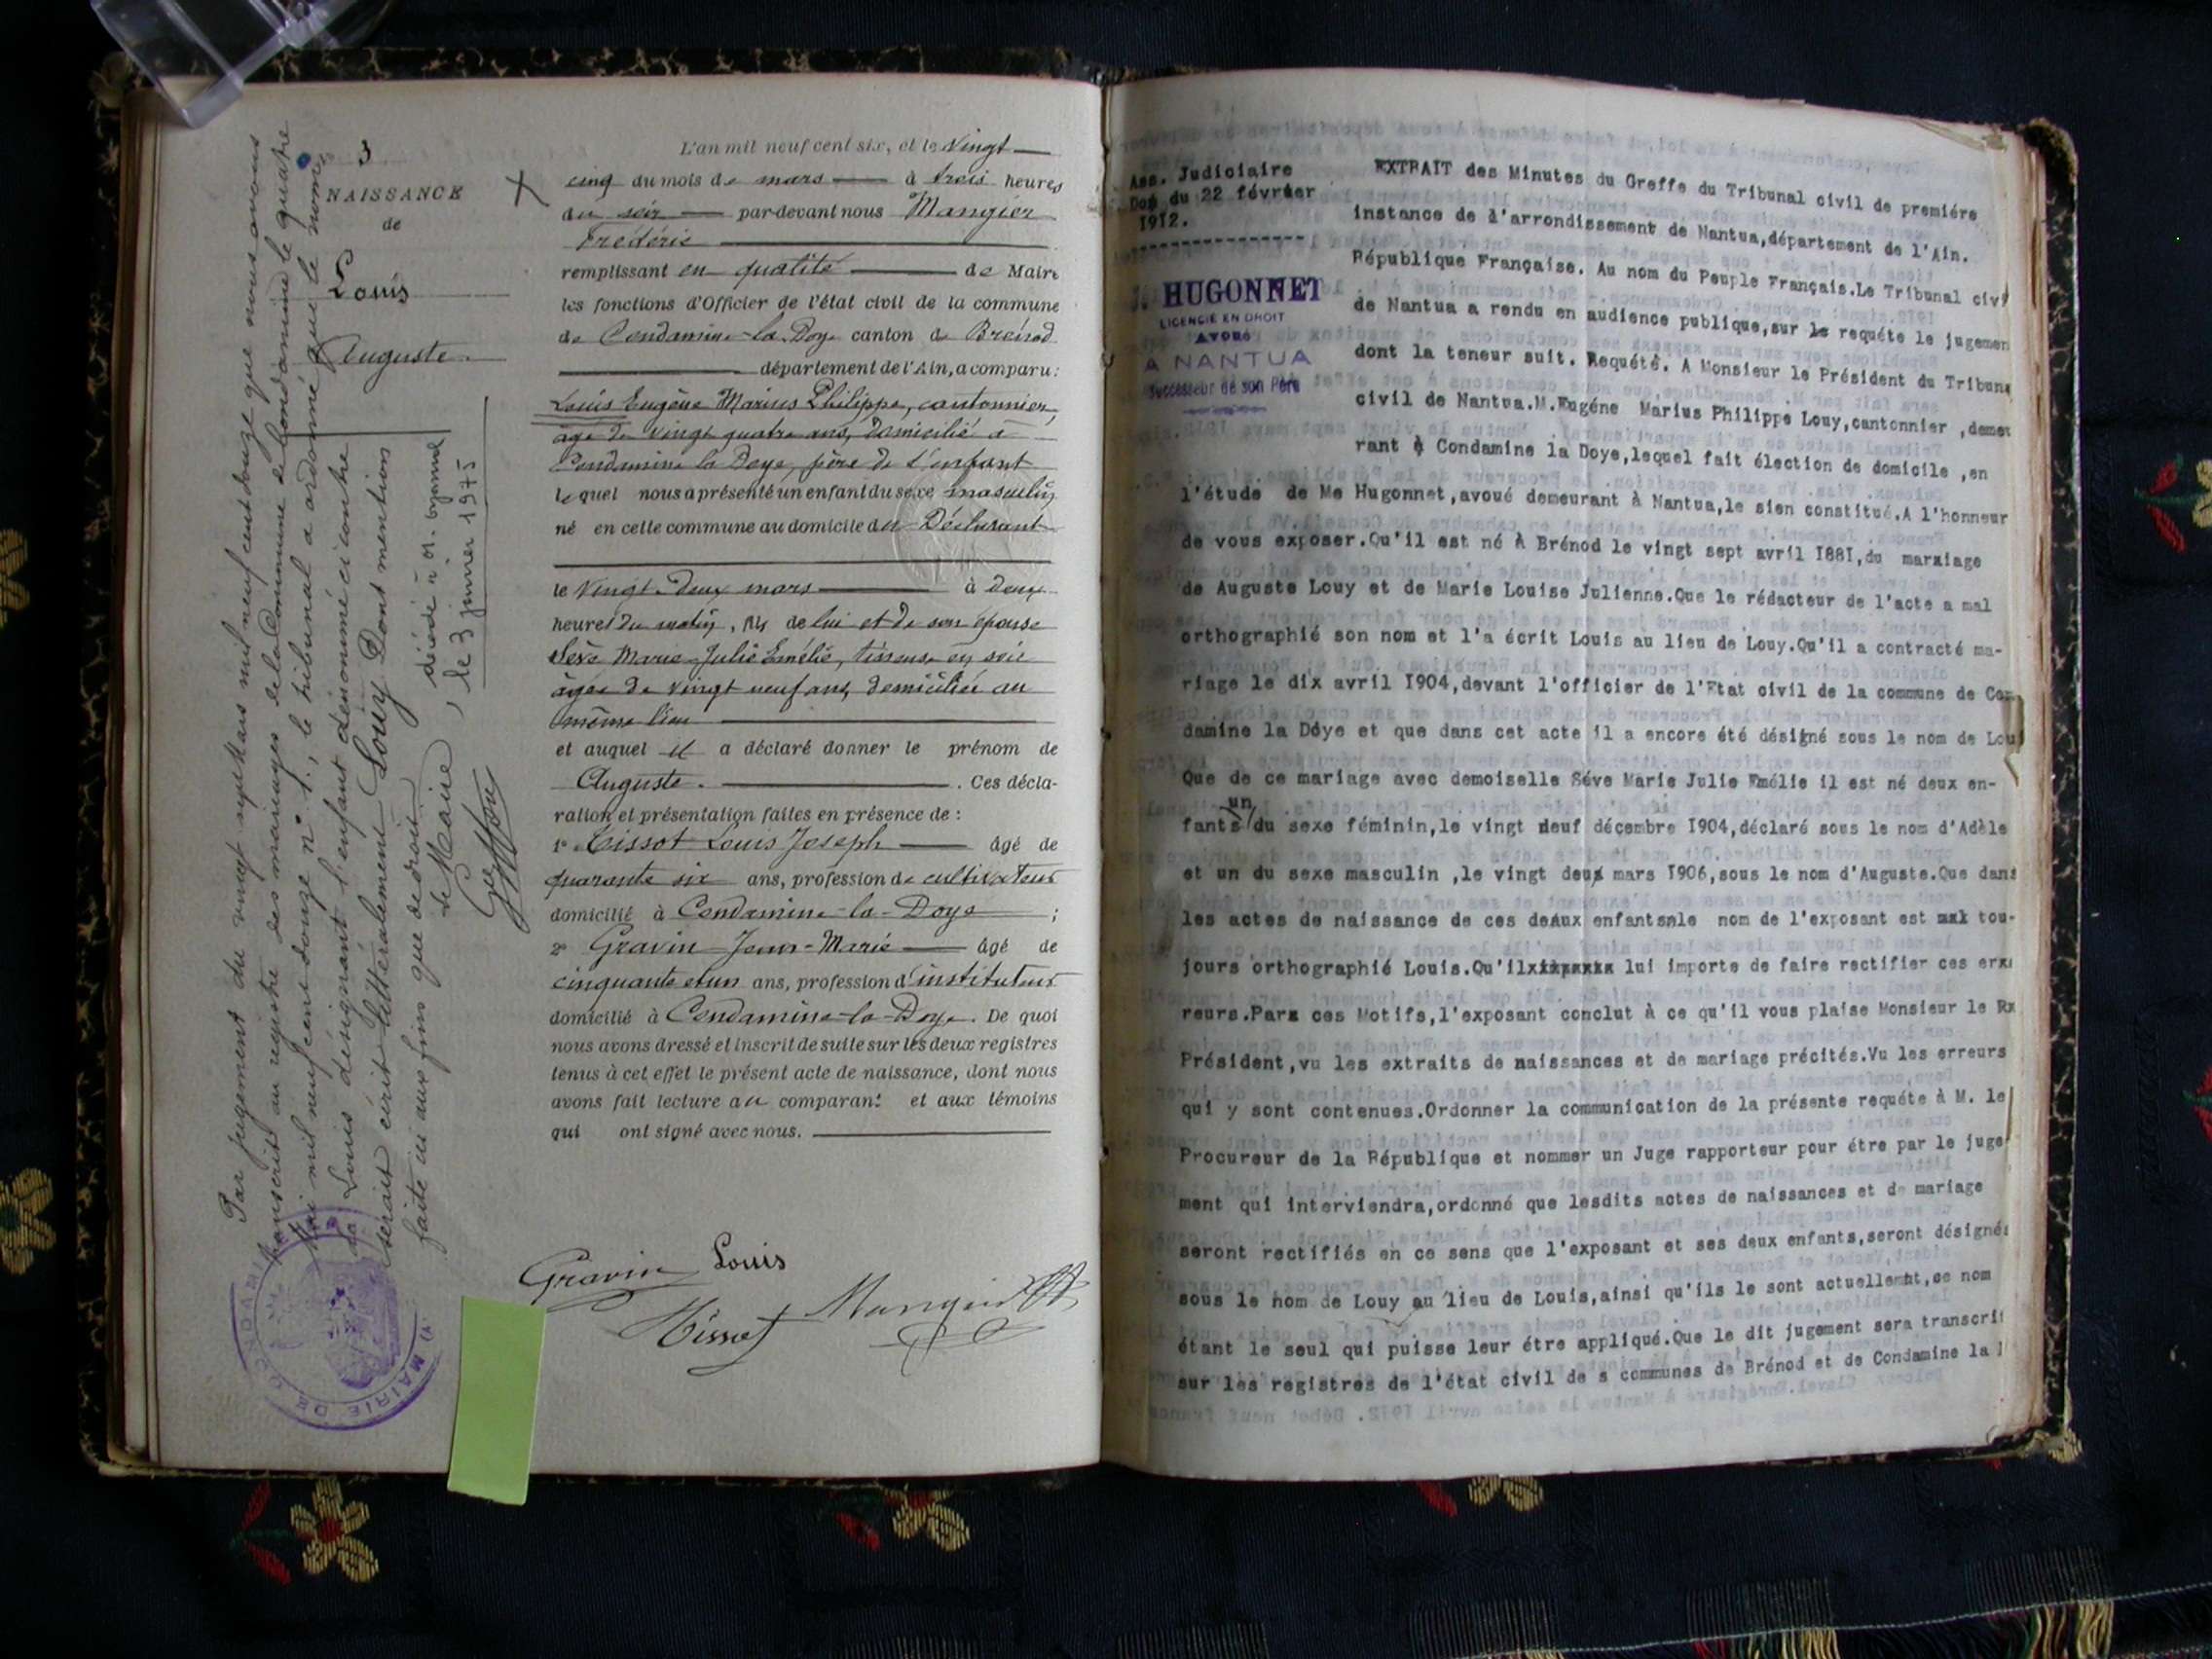 3
NAISSANCE
de
Louis
Auguste.
L'an mil neuf cent six, et le vingt
cinq du mois de mars à trois heures
du soir par-devant nous Mangier
Frédéric
remplissant en qualité de Maire
les fonctions d'Officier de l'état civil de la commune
de Condamine-la-Doye canton de Brénod
département de l'Ain, a comparu:
Louis Eugène Marius Philippe, cantonnier,
âgé de vingt quatre ans, domicilié à
Condamine la Doye, père de l'enfant
lequel nous a présenté un enfant du sexe masculin
né en cette commune au domicile du Déclarant
le vingt-deux mars à deux
heures du matin, fils de lui et de son épouse
Sève Marie-Julie Emélie, tisseuse en soie
âgée de vingt neuf ans, domiciliée au
même lieu
et auquel il a déclaré donner le prénom de
Auguste. . Ces décla-
ration et présentation faites en présence de :
1° Tissot Louis Joseph âgé de
quarante six ans, profession de cultivateur
domicilié à Condamine-la-Doye ;
2° Gravin Jean-Marie âgé de
cinquante et un ans, profession d'instituteur
domicilié à Condamine-la-Doye. De quoi
nous avons dressé et inscrit de suite sur les deux registres
tenus à cet effet le présent acte de naissance, dont nous
avons fait lecture au comparant et aux témoins
qui ont signé avec nous.
Gravin Louis
Tissot Mangier
Par jugement du vingt sept mars mil neuf cent douze que nous avons
transcrit au registre des mariages de la Commune de Condamine le quatre
Mai mil neuf cent douze n° 1., le tribunal a ordonné que le nom
de Louis désignant l'enfant dénommé ci contre
serait écrit littéralement Louy Dont mention
faite ici aux fins que de droit.
Le Maire,
décédé à 01. Oyonnax
le 3 janvier 1975
MAIRIE DE CONDAMINE
Ass. Judiciaire
Don du 22 février
1912.
J. HUGONNET
LICENCIÉ EN DROIT
AVOUÉ
A NANTUA
Successeur de son Père
EXTRAIT des Minutes du Greffe du Tribunal civil de premiére
instance de l'arrondissement de Nantua,département de l'Ain.
République Française. Au nom du Peuple Français.Le Tribunal civi
de Nantua a rendu en audience publique,sur le requéte le jugemen
dont la teneur suit. Requété. A Monsieur le Président du Tribuna
civil de Nantua.M.Eugéne Marius Philippe Louy,cantonnier ,demeu
rant à Condamine la Doye,lequel fait élection de domicile ,en
l'étude de Me Hugonnet,avoué demeurant à Nantua,le sien constitué.A l'honneur
de vous exposer.Qu'il est né A Brénod le vingt sept avril I88I,du marxiage
de Auguste Louy et de Marie Louise Julienne.Que le rédacteur de l'acte a mal
orthographié son nom et l'a écrit Louis au lieu de Louy.Qu'il a contracté ma-
riage le dix avril I904,devant l'officier de l'Etat civil de la commune de Con
damine la Dôye et que dans cet acte il a encore été désigné sous le nom de Loui
Que de ce mariage avec demoiselle Séve Marie Julie Emélie il est né deux en-
un
fants du sexe féminin,le vingt neuf décembre I904,déclaré sous le nom d'Adèle
et un du sexe masculin ,le vingt deux mars I906,sous le nom d'Auguste.Que dans
les actes de naissance de ces deAux enfantsnle nom de l'exposant est mxk tou-
jours orthographié Louis.Qu'ilxixpxxxx lui importe de faire rectifier ces erx
reurs.Parx ces Motifs,l'exposant conclut à ce qu'il vous plaise Monsieur le Rx
Président,vu les extraits de naissances et de mariage précités.Vu les erreurs
qui y sont contenues.Ordonner la communication de la présente requéte à M. le
Procureur de la République et nommer un Juge rapporteur pour étre par le juge
ment qui interviendra,ordonné que lesdits actes de naissances et de mariage
seront rectifiés en ce sens que l'exposant et ses deux enfants,seront désignés
sous le nom de Louy au lieu de Louis,ainsi qu'ils le sont actuellemnt,ce nom
étant le seul qui puisse leur étre appliqué.Que le dit jugement sera transcrit
sur les registres de l'état civil de s communes de Brénod et de Condamine la